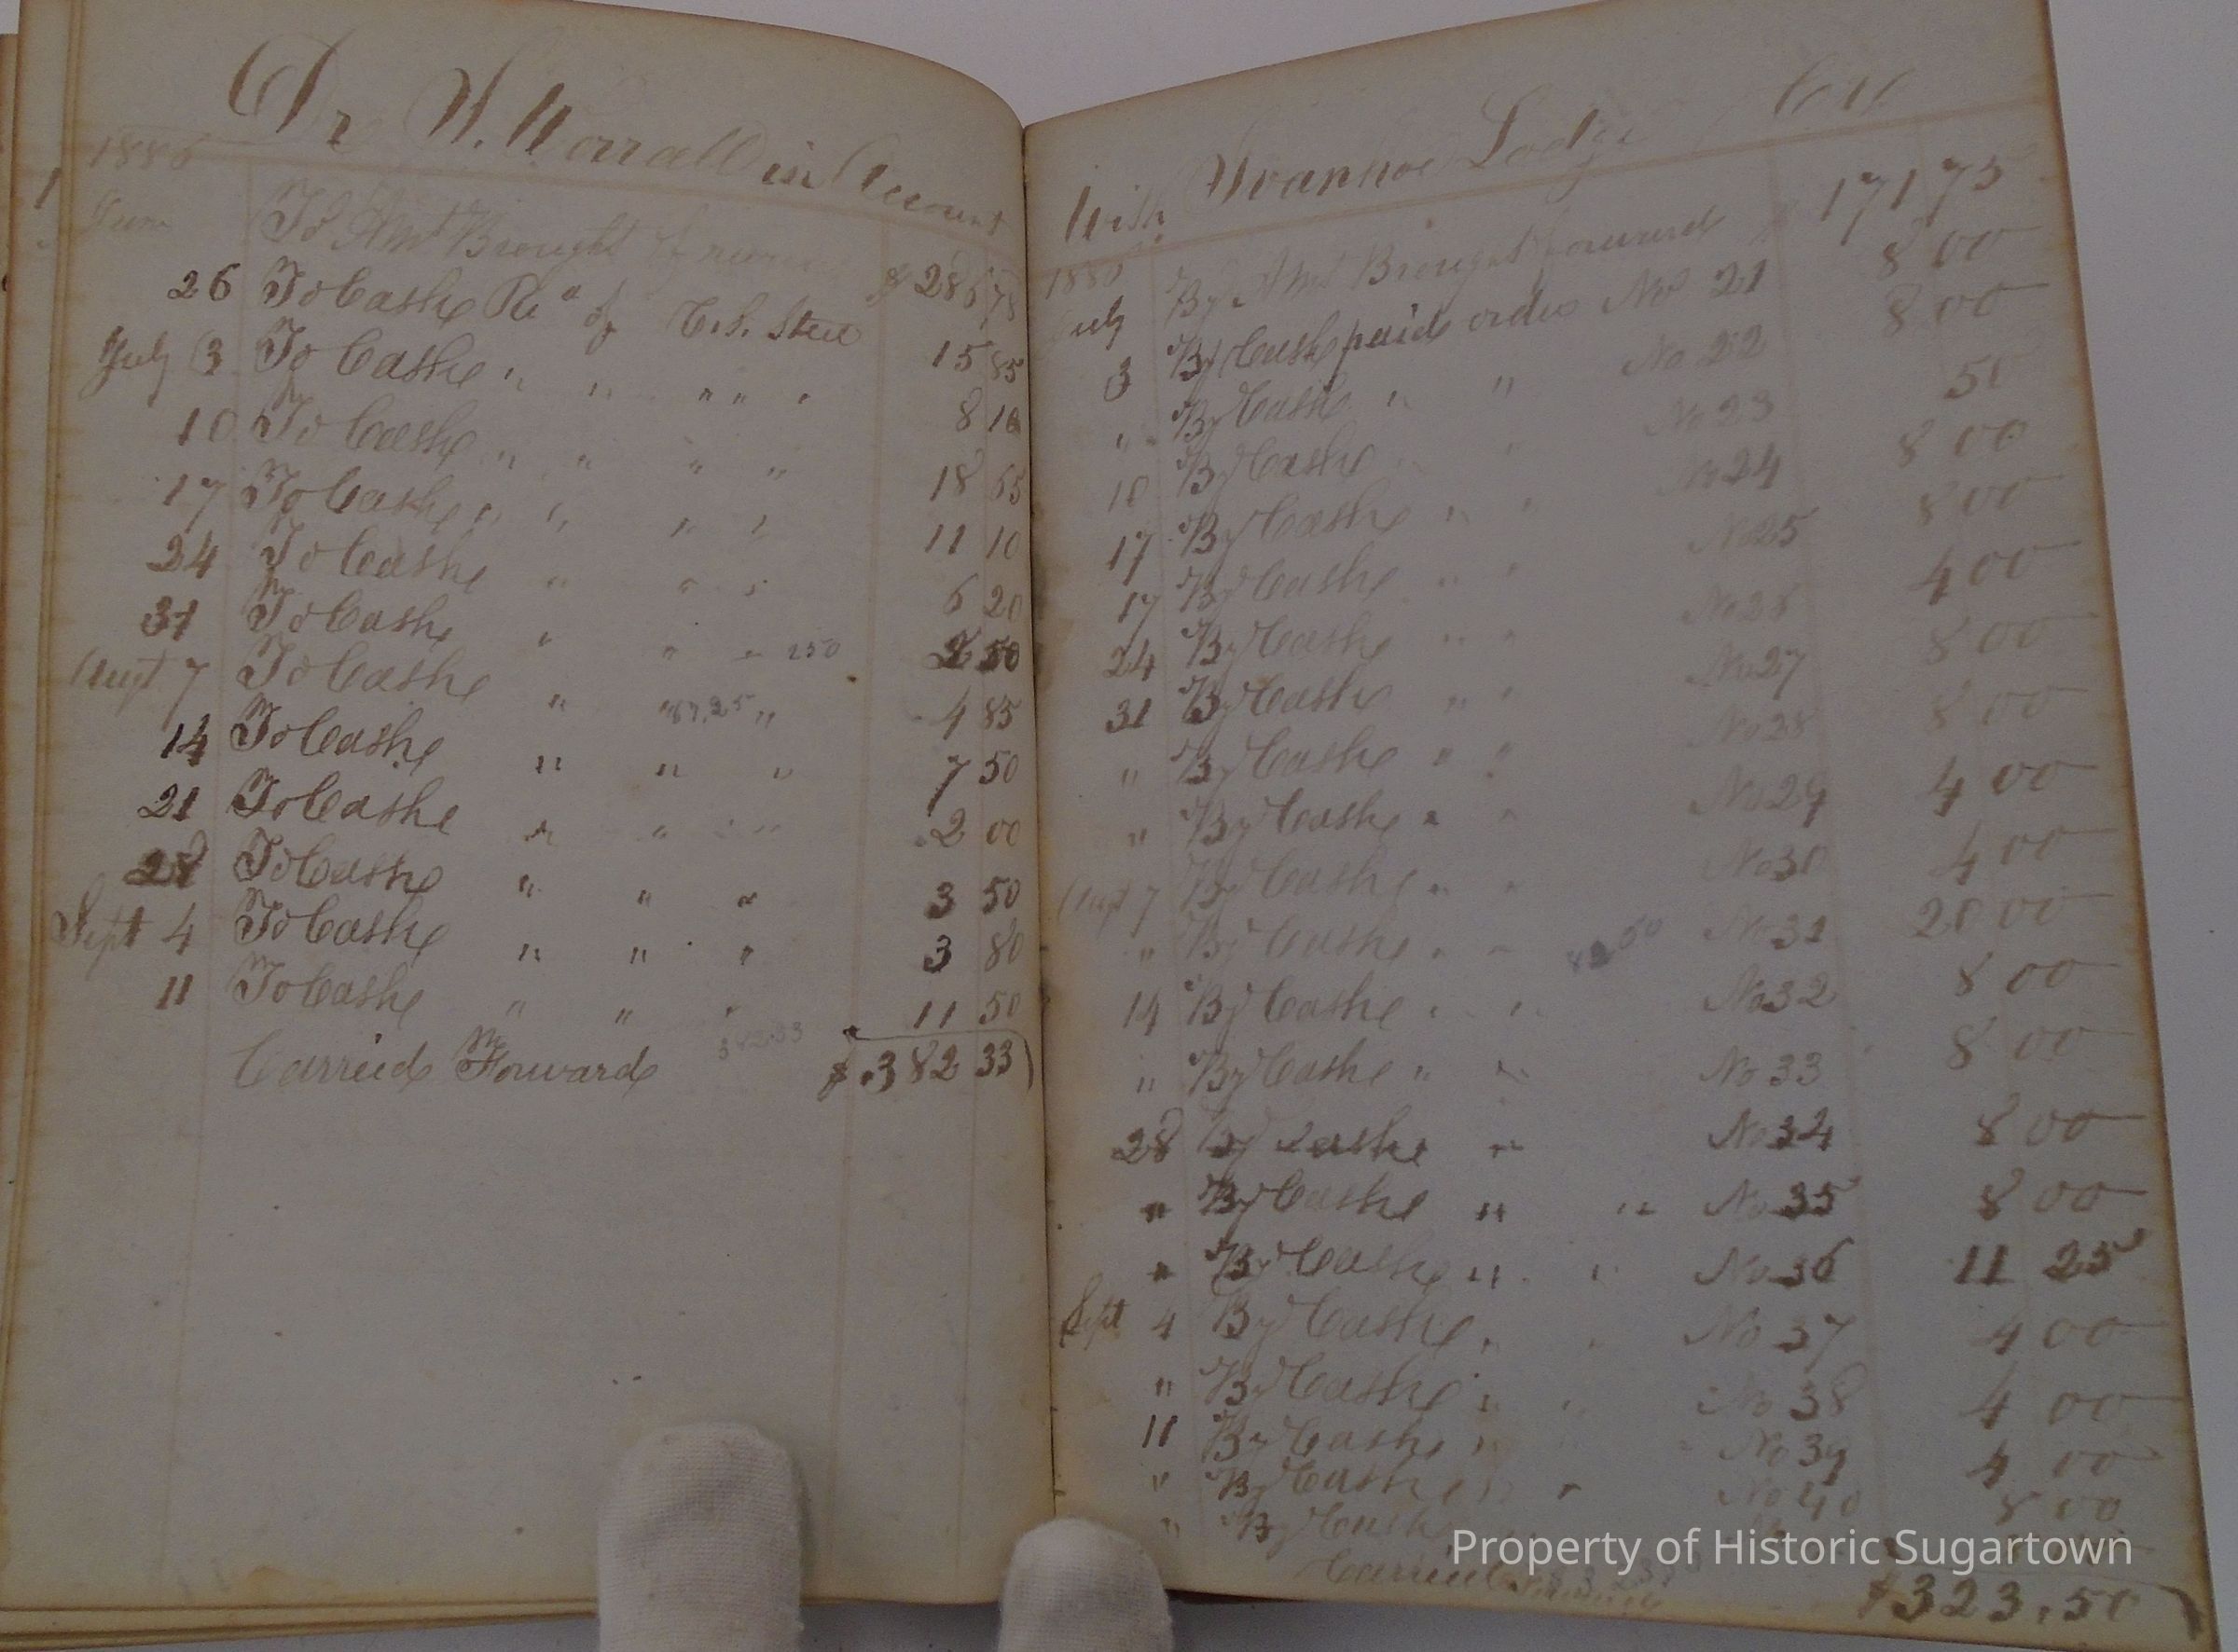 Dr W. Worrall in Account
1886
June To Amt Brought forward $ 286 78
26 To Cashe Recd of C.S. Steel 15 85
July 3 To Cashe " " " " " 8 10
10 To Cashe " " " " 18 65
17 To Cashe " " " " 11 10
24 To Cashe " " " 6 20
31 To Cashe " " " 250 2 50
Augt 7 To Cashe " " 67,25 " 4 85
14 To Cashe " " " 7 50
21 To Cashe " " " 2 00
28 To Cashe " " " 3 50
Sept 4 To Cashe " " " 3 80
11 To Cashe " " " 11 50
382.33
Carried Forward $ 382 33
With Ivanhoe Lodge
July By Amt Brought forward 171 75
3 By Cash paid order No 21 8 00
" By Cashe " " No 22 8 00
10 By Cashe " " No 23 50
17 By Cashe " " No 24 8 00
17 By Cashe " " No 25 8 00
24 By Cashe " " No 26 4 00
31 By Cashe " " No 27 8 00
" By Cashe " " No 28 8 00
" By Cashe " " No 29 4 00
Augt 7 By Cashe " " No 30 4 00
" By Cashe " " No 31 20 00
14 By Cashe " " No 32 8 00
" By Cashe " " No 33 8 00
28 By Cashe " No 34 8 00
" By Cashe " " No 35 8 00
" By Cashe " " No 36 11 25
Sept 4 By Cashe " " No 37 4 00
" By Cashe " " No 38 4 00
11 By Cashe " No 39 4 00
" By Cashe " " No 40 8 00
" By Cash
Carried $323.50
Property of Historic Sugartown